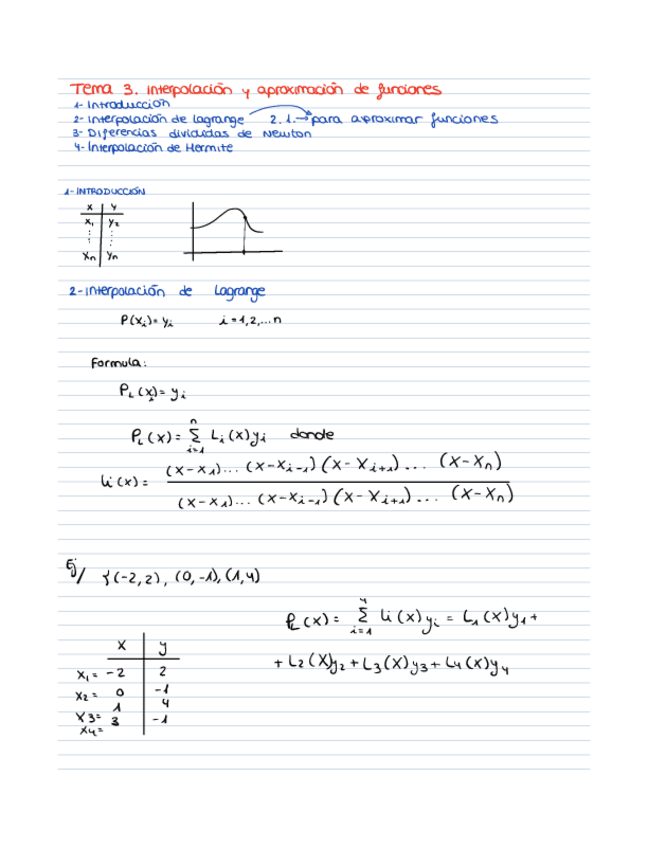 Tema 3. Interpolación y aproximación de funciones
1- Introducción
2- Interpolación de Lagrange 2.1.→ para aproximar funciones
3- Diferencias divididas de Newton
4- Interpolación de Hermite
1- INTRODUCCIÓN
x y
x₁ y₂
⋮ ⋮
xₙ yₙ
2- Interpolación de Lagrange
P(xᵢ)= yᵢ i = 1,2,...n
Formula:
P_L(xᵢ)= yᵢ
P_L(x)= Σⁿᵢ₌₁ Lᵢ(x)yᵢ donde
Lᵢ(x)= (x-x₁)... (x-xᵢ₋₁)(x-xᵢ₊₁)... (x-xₙ)
(x-x₁)... (x-xᵢ₋₁)(x-xᵢ₊₁)... (x-xₙ)
Ej/ {(-2,2), (0,-1), (1,4)
P_L(x)= Σ⁴ᵢ₌₁ Lᵢ(x)yᵢ = L₁(x)y₁+
+ L₂(x)y₂ + L₃(x)y₃ + L₄(x)y₄
x y
x₁ = -2 2
x₂ = 0 -1
1 4
x3= 3 -1
x₄=